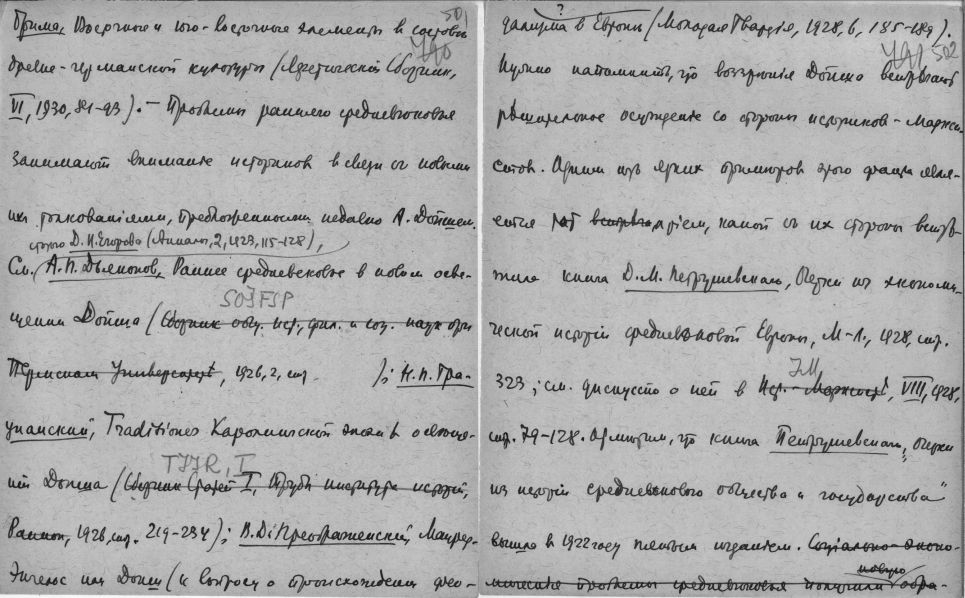 501
Брима, Восточные и юго-восточные элементы в составе
790
древне-германской культуры (Яфетический Сборник,
VI, 1930, 81-93). — Проблемы раннего средневековья
занимают внимание историков в связи с новыми
их толкованиями, предложенными недавно А. Допшем.
статью Д. Н. Егорова (Анналы, 2, 1923, 115-128),
См. А. П. Дьяконов, Раннее средневековье в новом осве-
SOIFSP
щении Допша (Сборник общ. ист., фил. и соц. наук при
Пермском Университете, 1926, 2, стр. ); Н. П. Гра-
цианский, Traditiones Каролингской эпохи в освеще-
TIIR, I
нии Допша (Сборник Статей I, Труды института истории,
Ранион, 1926, стр. 219-234); В. Д. Преображенский, Маурер-
Энгельс или Допш (к вопросу о происхождении фео-
502
дализма в Европе (Молодая Гвардия, 1928, 6, 185-189).
791
Нужно напомнить, что воззрения Допша встречают
решительное осуждение со стороны историков-маркси-
стов. Одним из ярких примеров этого факта явля-
ется тот прием, какой с их стороны встре-
тила книга Д. М. Петрушевского, Очерки из экономи-
ческой истории средневековой Европы, М-Л., 1928, стр.
IM
323; см. дискуссию о ней в Ист.-Марксист, VIII, 1928,
стр. 79-128. Отметим, что книга Петрушевского, „Очерки
из истории средневекового общества и государства"
вышла в 1922 году пятым изданием. Социально-эконо-
новую
мические проблемы средневековья получили обра-